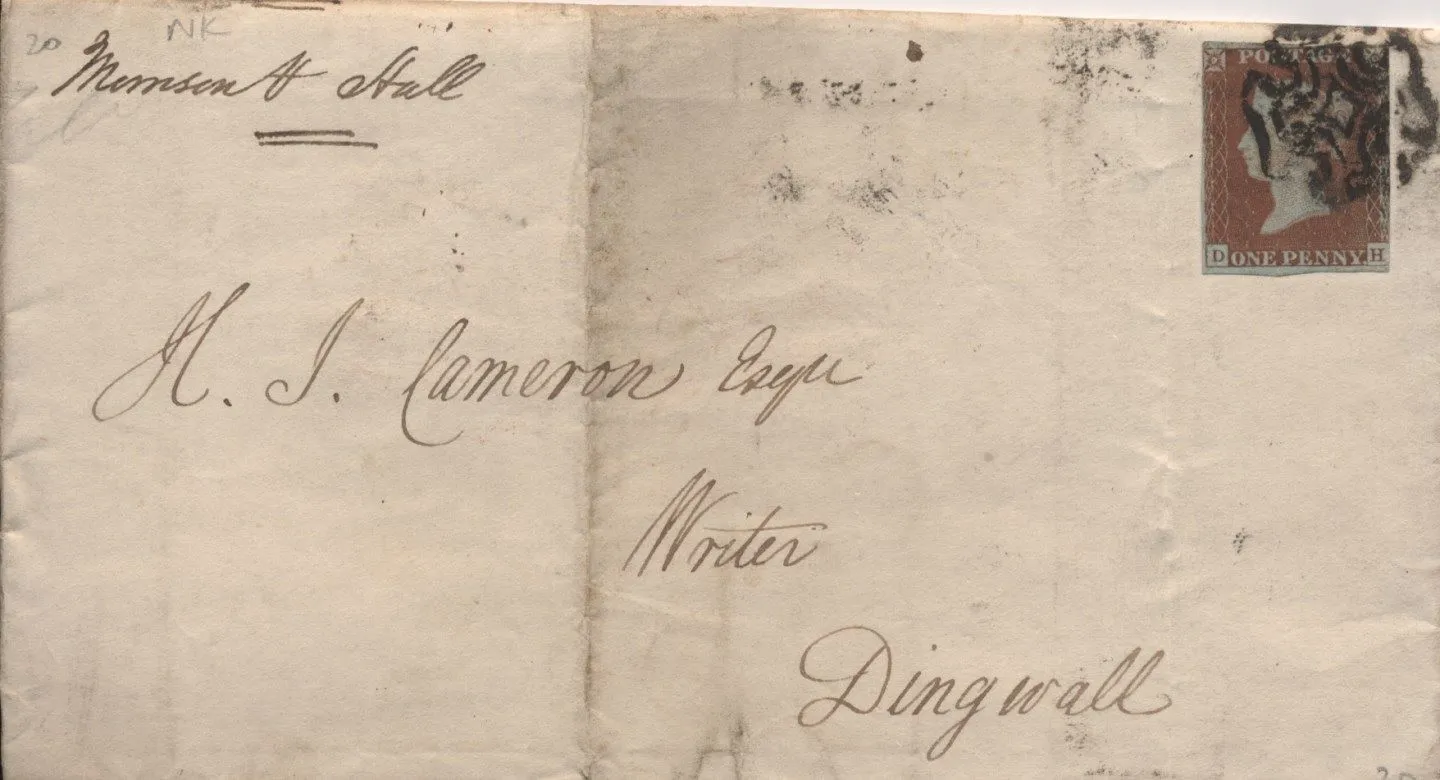 20 NK
Hall
POSTAGE
D ONE PENNY. H
H. J. Cameron Esqu
Writer
Dingwall